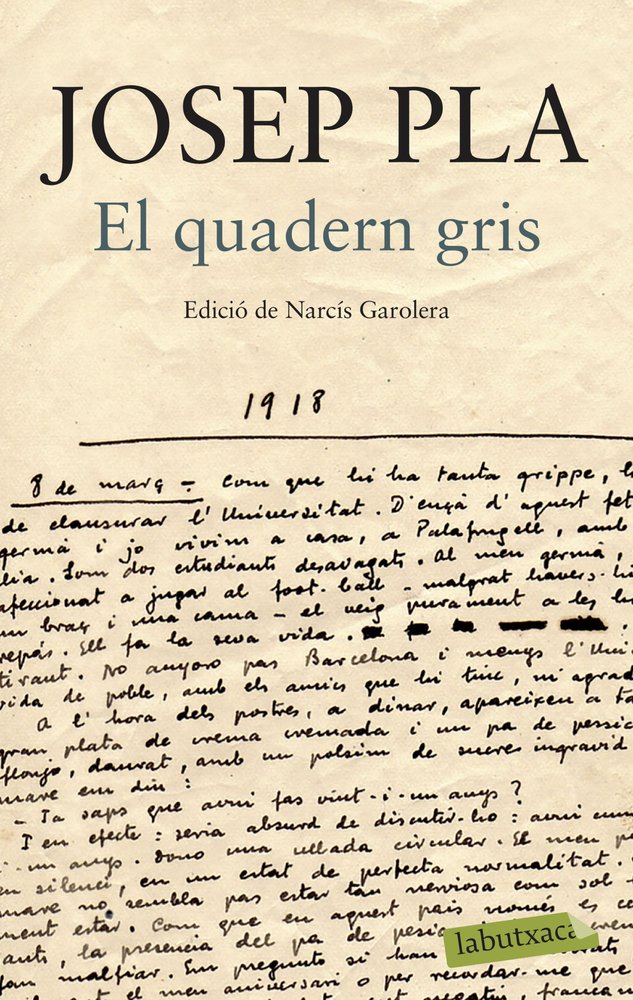 JOSEP PLA
El quadern gris
Edició de Narcís Garolera
1918
8 de març - Com que hi ha tanta grippe, h
de clausurar l'Universitat. D'ençà d'aquest fet
germà i jo vivim a casa, a Palafrugell, amb
lia. Som dos estudiants desvagats. Al meu germà,
afeccionat a jugar al foot-ball - malgrat havers-hi
un braç i una cama - el veig purament a les h
repàs. Ell fa la seva vida.
tirant. No anyoro pas Barcelona i menys l'Uni
vida de poble, amb els amics que hi tinc, m'agrad
A l'hora dels postres, a dinar, apareixen a ta
gran plata de crema cremada i un pa de pessic
flonjo, daurat, amb un polsim de sucres ingravid
mare em diu:
- Ja saps que avui fas vint-i-un anys?
I en efecte: seria absurd de discutir-ho: avui cum
i-un anys. Dono una ullada circular. El meu pa
en silenci, en un estat de perfecta normalitat.
mare no sembla pas estar tan nerviosa com sol
ment estar. Com que en aquest pais només es ce
ants, la presencia del pa de pessic
fan malfiar. Em pregunto si han
el meu aniversari o per recordar-me que
labutxaca